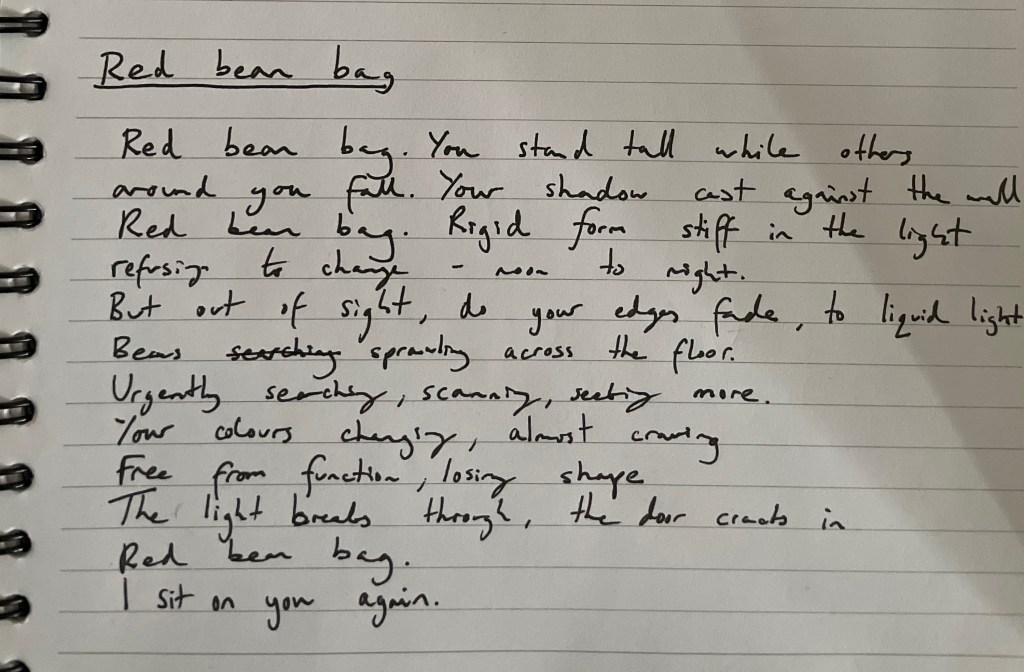 Red bean bag
Red bean bag. You stand tall while others
around you fall. Your shadow cast against the wall
Red bean bag. Rigid form stiff in the light
refusing to change - noon to night.
But out of sight, do your edges fade, to liquid light
Beans searching sprawling across the floor.
Urgently searching, scanning, seeking more.
Your colours changing, almost craving
Free from function, losing shape
The light breaks through, the door cracks in
Red bean bag.
I sit on you again.